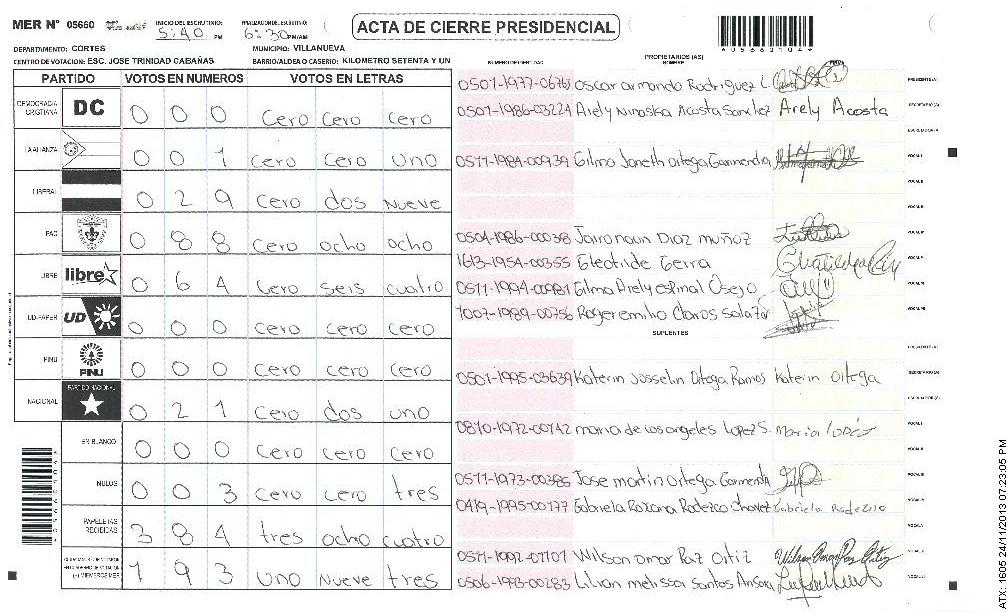 MER Nº 05660 INICIO DEL ESCRUTINIO: 5:40 PM FINALIZACION DEL ESCRUTINIO: 6:30 PM/AM ACTA DE CIERRE PRESIDENCIAL
DEPARTAMENTO: CORTES MUNICIPIO: VILLANUEVA
CENTRO DE VOTACION: ESC. JOSE TRINIDAD CABAÑAS BARRIO/ALDEA O CASERIO: KILOMETRO SETENTA Y UN
PARTIDO VOTOS EN NUMEROS VOTOS EN LETRAS
DEMOCRACIA CRISTIANA DC 0 0 0 cero cero cero
LA ALIANZA 0 0 1 cero cero uno
LIBERAL 0 2 9 cero dos nueve
PAC 0 8 8 cero ocho ocho
LIBRE libre 0 6 4 cero seis cuatro
UD-FAPER UD 0 0 0 cero cero cero
PINU PINU 0 0 0 cero cero cero
NACIONAL PARTIDO NACIONAL 0 2 1 cero dos uno
EN BLANCO 0 0 0 cero cero cero
NULOS 0 0 3 cero cero tres
PAPELETAS RECIBIDAS 3 8 4 tres ocho cuatro
1 9 3 uno nueve tres
NUMERO DE IDENTIDAD PROPIETARIOS (AS)
NOMBRE
Oscar armando Rodriguez L. PRESIDENTE(A)
0501-1986-03224 Arely Ninoska Acosta Sanchez Arely Acosta SECRETARIO(A)
ESCRUTADOR(A)
0511-1984-00939 Gilma Janeth ortega Garmendia VOCAL I
VOCAL II
VOCAL III
0504-1986-00038 Diaz muñoz VOCAL IV
1613-1954-00355 VOCAL V
0511-1994-00981 Gilma Arely espinal Osejo VOCAL VI
Roger emilio Claros VOCAL VII
SUPLENTES
PRESIDENTE(A)
0501-1995-03639 Katerin Josselin Ortega Ramos Katerin Ortega SECRETARIO(A)
ESCRUTADOR(A)
0810-1972-00142 maria de los angeles Lopez S. Maria Lopez VOCAL I
VOCAL II
0511-1973-00385 Jose martin ortega Garmendia VOCAL III
0419-1995-00177 Gabriela VOCAL IV
VOCAL V
0511-1992-01101 Wilson omar Paz ortiz Wilson Omar Paz Ortiz
0506-1993-00283 melissa Santos
ATX: 1605 24/11/2013 07:23:05 PM